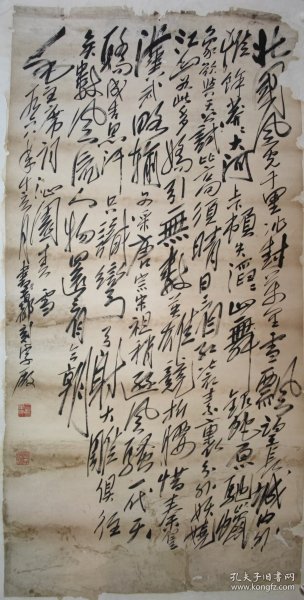 北國風光千里冰封萬里雪飄望長城內外
惟餘莽莽大河上下頓失滔滔山舞銀蛇原馳蠟
象欲與天公試比高須晴日看紅裝素裹分外妖嬈
江山如此多嬌引無數英雄競折腰惜秦皇
漢武略輸文采唐宗宋祖稍遜風騷一代天
驕成吉思汗只識彎弓射大雕俱往
矣數風流人物還看今朝
毛主席詞沁園春雪
年十二月書
孔夫子旧书网